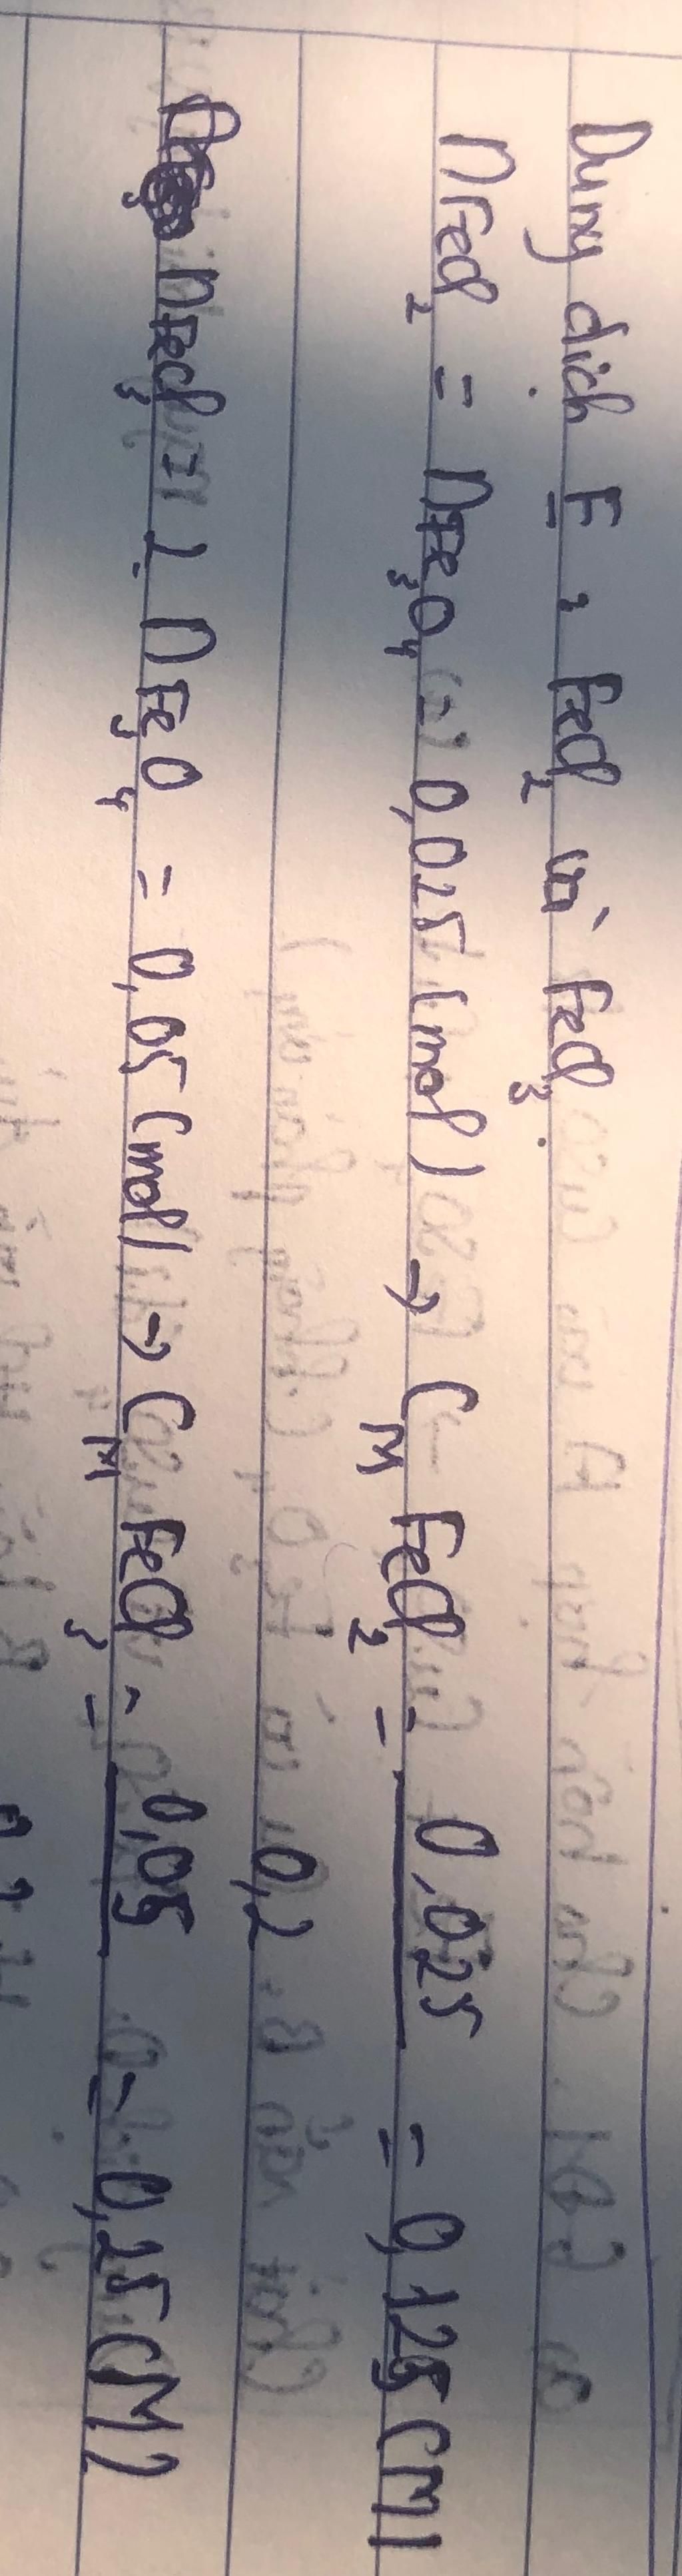 Dung dịch E: FeCl₂ và FeCl₃.
nFeCl₂ = nFe₃O₄ = 0,025 (mol) → CM FeCl₂ = 0,025 / 0,2 = 0,125 (M)
nFeCl₃ = 2. nFe₃O₄ = 0,05 (mol) → CM FeCl₃ = 0,05 = 0,25 (M)